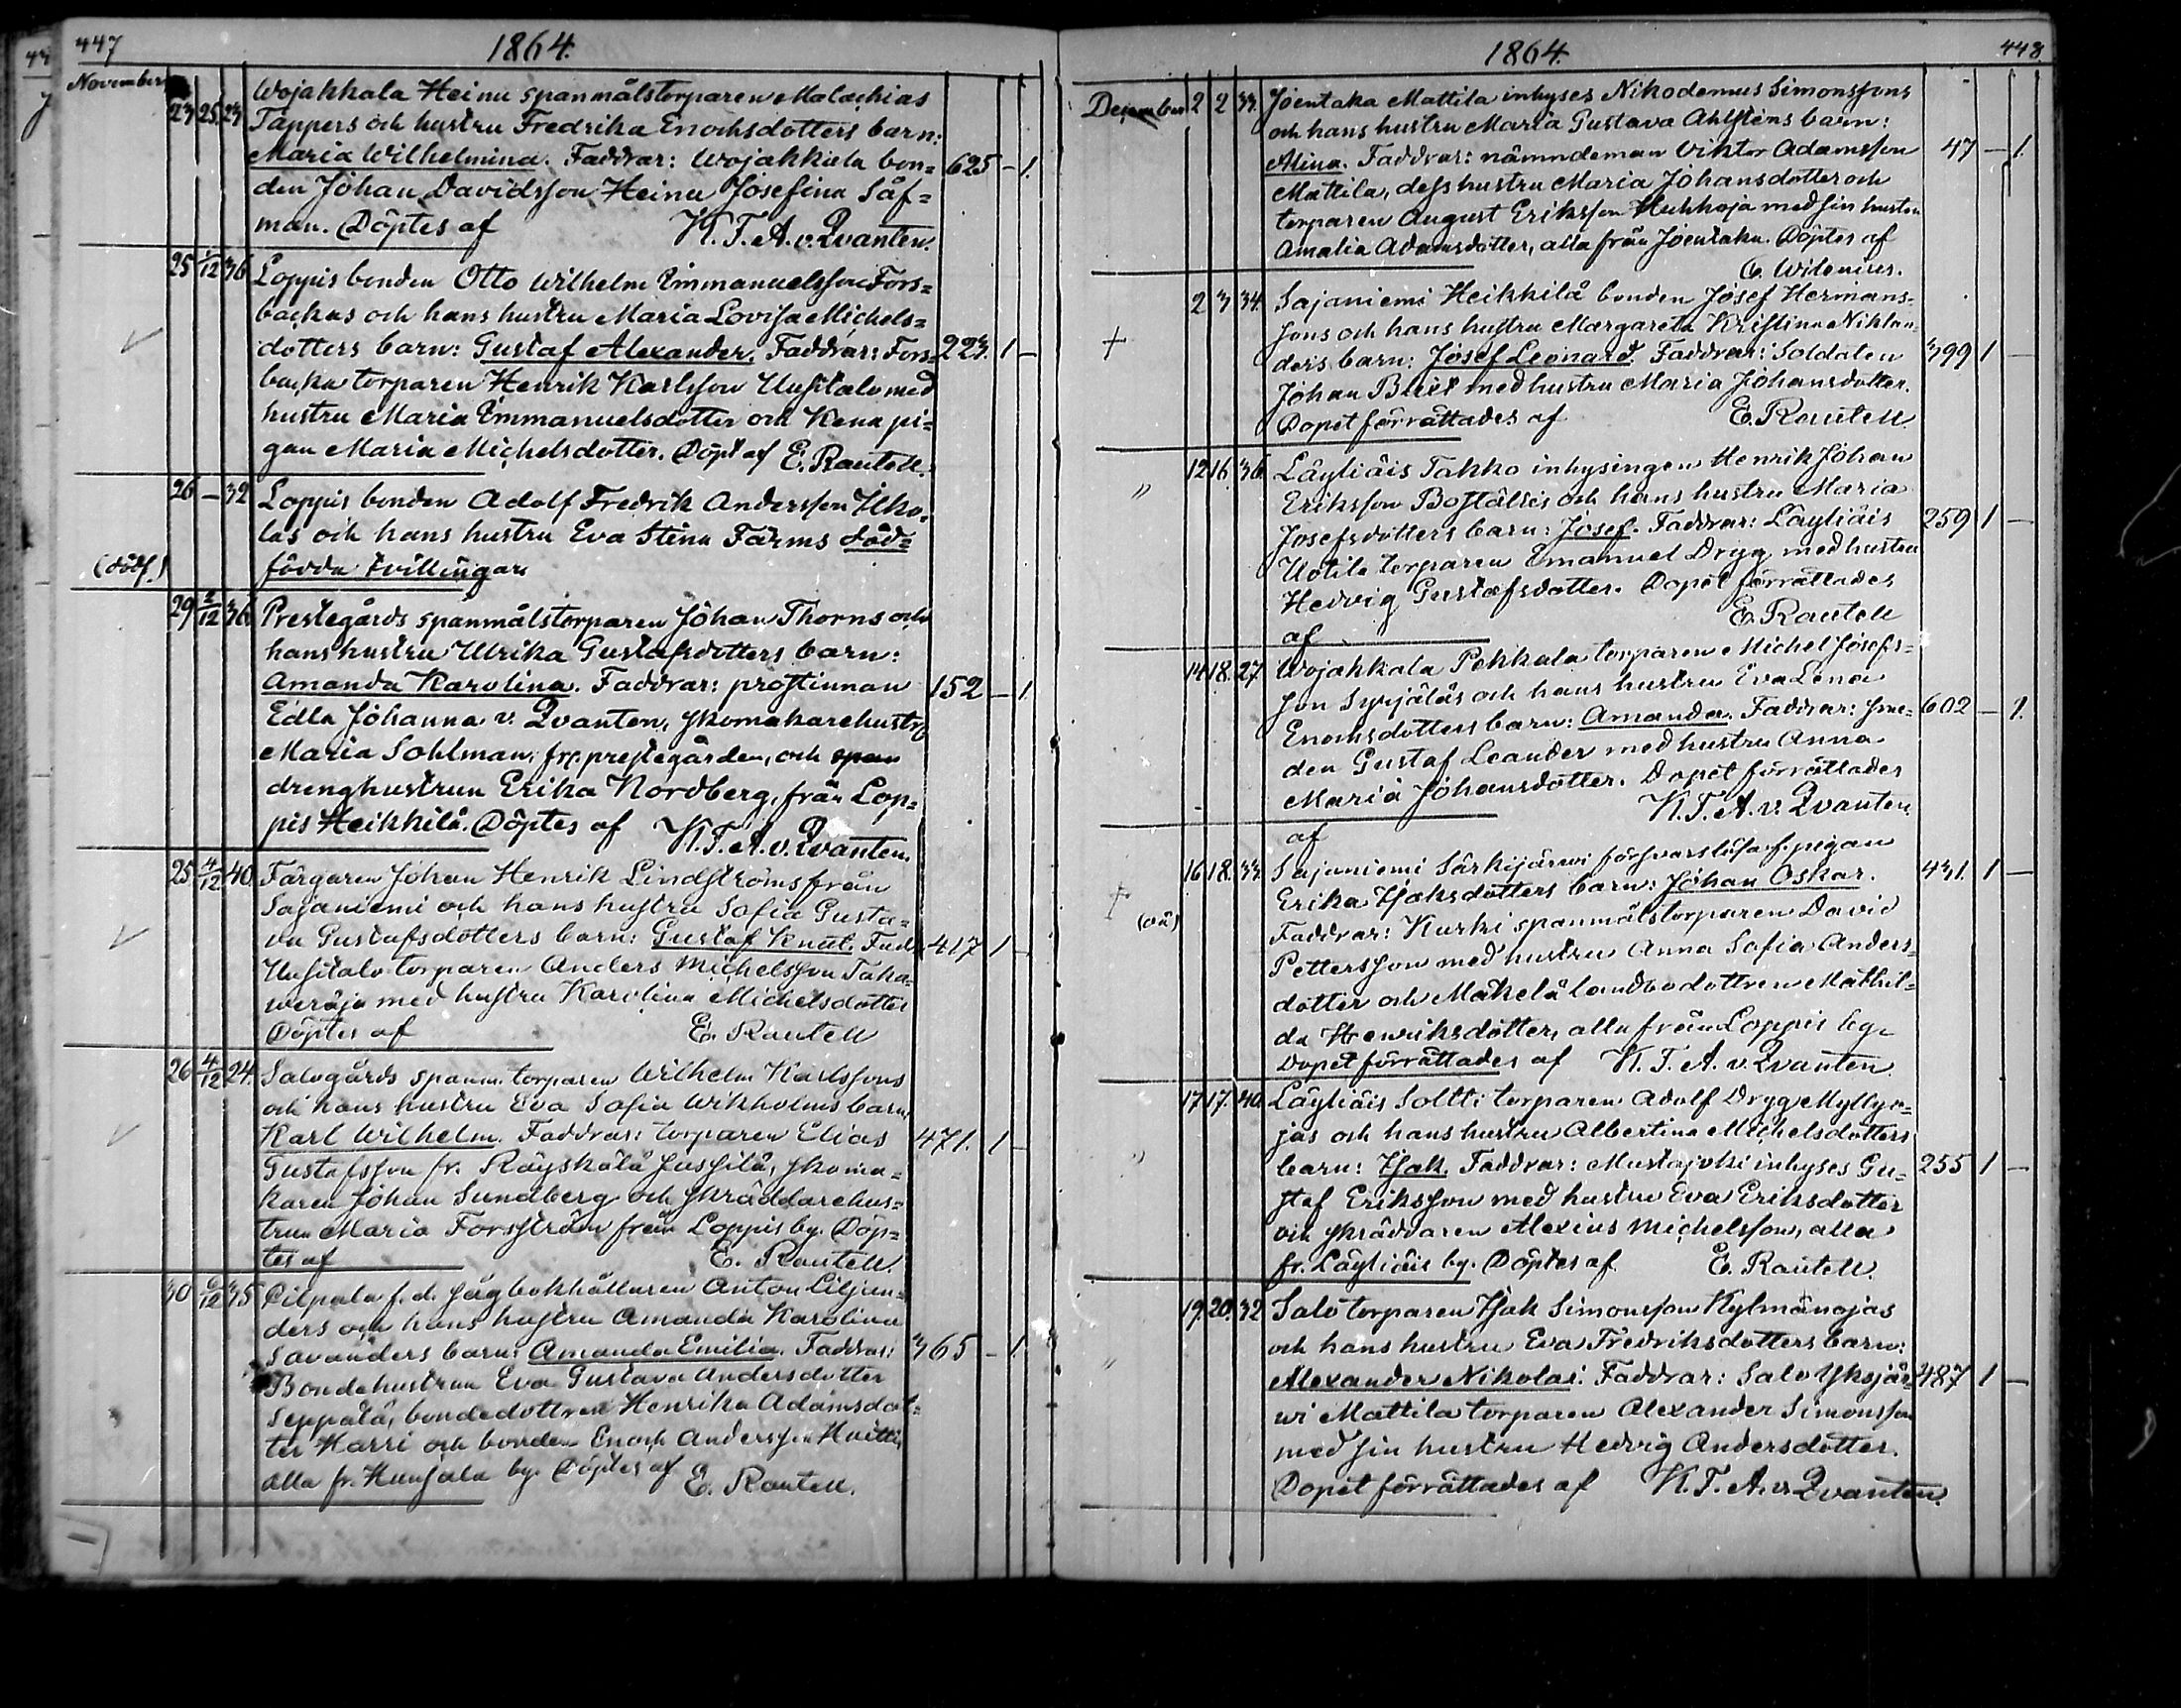 447 1864.
November
23 25. 23 Wojakkala Heinu spanmålstorparen Malachias
Tappers och hustru Fredrika Enochsdotters barn:
Maria Wilhelmina. Faddrar: Wojakkala bon= 625 – 1.
den Johan Davidsson Heinu Josefina Säf=
man. Döptes af K. T. A. v. Qvanten.
25 1/12 36 Loppis bonden Otto Wilhelm Emmanuelsson Fors=
backas och hans hustru Maria Lovisa Michels=
dotters barn: Gustaf Alexander. Faddrar: Fors= 223. 1 –
backa torparen Henrik Karlsson Uusitalo med
hustru Maria Emmanuelsdotter och Kena pi=
gan Maria Michelsdotter. Döpt af E. Rautell.
26 – 32 Loppis bonden Adolf Fredrik Andersson Ilko=
las och hans hustru Eva Stina Färms död=
(dödf.) födda tvillingar
29 2/12 36 Prestegårds spanmålstorparen Johan Thorns och
hans hustru Ulrika Gustafsdotters barn:
Amanda Karolina. Faddrar: prostinnan 152 – 1.
Edla Johanna v. Qvanten, skomakarehustr
Maria Sohlman, fr. prestegården, och span
drenghustrun Erika Nordberg, från Lop=
pis Heikkilä. Döptes af K. T. A. v. Qvanten.
25 4/12 40. Färgaren Johan Henrik Lindströms från
Sajaniemi och hans hustru Sofia Gusta=
va Gustafsdotters barn: Gustaf Knut. Fad. 417 1 –
Uusitalo torparen Anders Michelsson Taka=
weräjä med hustru Karolina Michelsdotter
Döptes af E. Rautell
26 4/12 24. Salogårds spanm. torparen Wilhelm Karlssons
och hans hustru Eva Sofia Wikholms barn
Karl Wilhelm. Faddrar: torparen Elias 471. 1 –
Gustafsson fr. Räyskälä Jussilä, skoma=
karen Johan Sundberg och skräddarehus=
trun Maria Forsström från Loppis by. Döp=
tes af E. Rautell.
30 6/12 35 Pilpala f. d. sågbokhållaren Anton Liljan=
ders och hans hustru Amanda Karolina
Savanders barn: Amanda Emilia. Faddrar: 365 – 1.
Bondehustrun Eva Gustava Andersdotter
Seppälä, bondedottren Henrika Adamsdot=
ter Harri och bonden Enoch Andersson Huitti
alla fr. Hunsala by. Döptes af E. Rautell.
1864. 448
December 2 2 33. Joentaka Mattila inhyses Nikodemus Simonssons
och hans hustru Maria Gustava Ahlstens barn:
Mina. Faddrar: nämndeman Viktor Adamsson 47 – 1.
Mattila, dess hustru Maria Johansdotter och
torparen August Eriksson Huhkoja med sin hustru
Amalia Adamsdotter, alla från Joentaka. Döptes af
E. Widenius.
2 3 34. Sajaniemi Heikkilä bonden Josef Hermans=
sons och hans hustru Margareta Kristina Niklan=
ders barn: Josef Leonard. Faddrar: Soldaten 399 1 –
Johan med hustru Maria Johansdotter.
Dopet förrättades af E. Rautell.
" 12 16. 36. Läyliäis Takko inhysingen Henrik Johan
Eriksson och hans hustru Maria
Josefsdotters barn: Josef. Faddrar: Läyliäis 259 1 –
Uotila torparen Emanuel Drygg med hustru
Hedvig Gustafsdotter. Dopet förrättades
af E. Rautell
14 18. 27. Wojakkala Pekkala torparen Michel Josefs=
son Syrjäläs och hans hustru Eva Lena
Enochsdotters barn: Amanda. Faddrar: sme= 602 – 1.
den Gustaf Leander med hustru Anna
Maria Johansdotter. Dopet förrättades
af K. T. A. v. Qvanten.
16 18. 33. Sajaniemi Särkijärwi försvarslösa f. pigan
(oä) Erika Isaksdotters barn: Johan Oskar. 431. 1 –
Faddrar: Kurki spanmålstorparen David
Pettersson med hustru Anna Sofia Anders=
dotter och Mäkelä landbodottren Mathil=
da Henriksdotter, alla från Loppis by.
Dopet förrättades af K. T. A. v. Qvanten.
17 17. 40. Läyliäis Soltti torparen Adolf Dryg Myllyo=
jas och hans hustru Albertina Michelsdotters
" barn: Isak. Faddrar: Mustajoki inhyses Gu= 255 1 –
staf Eriksson med hustru Eva Eriksdotter
och skräddaren Alexius Michelsson, alla
fr. Läyliäis by. Döptes af E. Rautell.
19. 20. 32 Salo torparen Isak Simonsson Kylmänojas
och hans hustru Eva Fredriksdotters barn:
" Alexander Nikolai. Faddrar: Salo Yksjär= 487 1 –
wi Mattila torparen Alexander Simonsson
med sin hustru Hedvig Andersdotter.
Dopet förrättades af K. T. A. v. Qvanten.